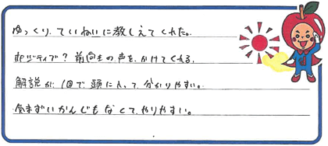 ゆっくり、ていねいに教しえてくれた。
ポジティブ？前向きの声をかけてくれる。
解説が1回で頭に入って分かりやすい。
気まずいかんじもなくて、やりやすい。